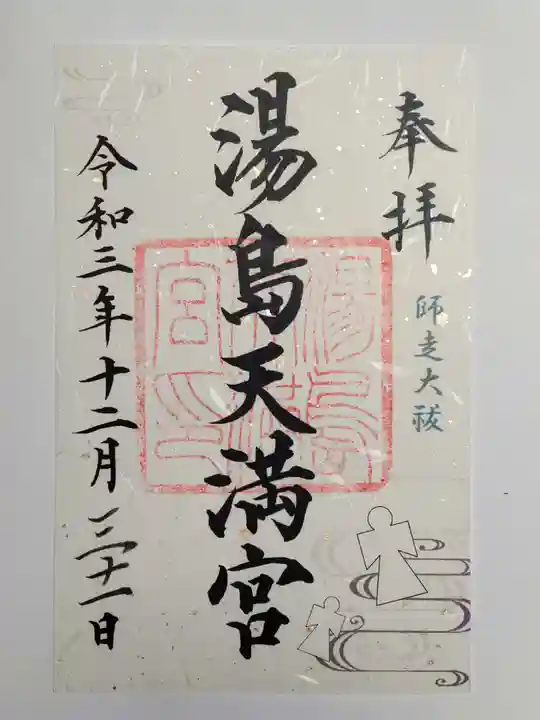 奉拝
師走大祓
湯島天満宮
令和三年十二月三十一日